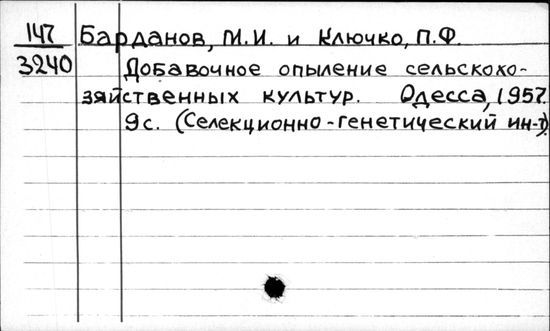 147 Барданов, М.И. и Ключко, П.Ф.
3240 Добавочное опыление сельскохо-
зяйственных культур. Одесса, 1957.
9с. (Селекционно-генетический ин-т)